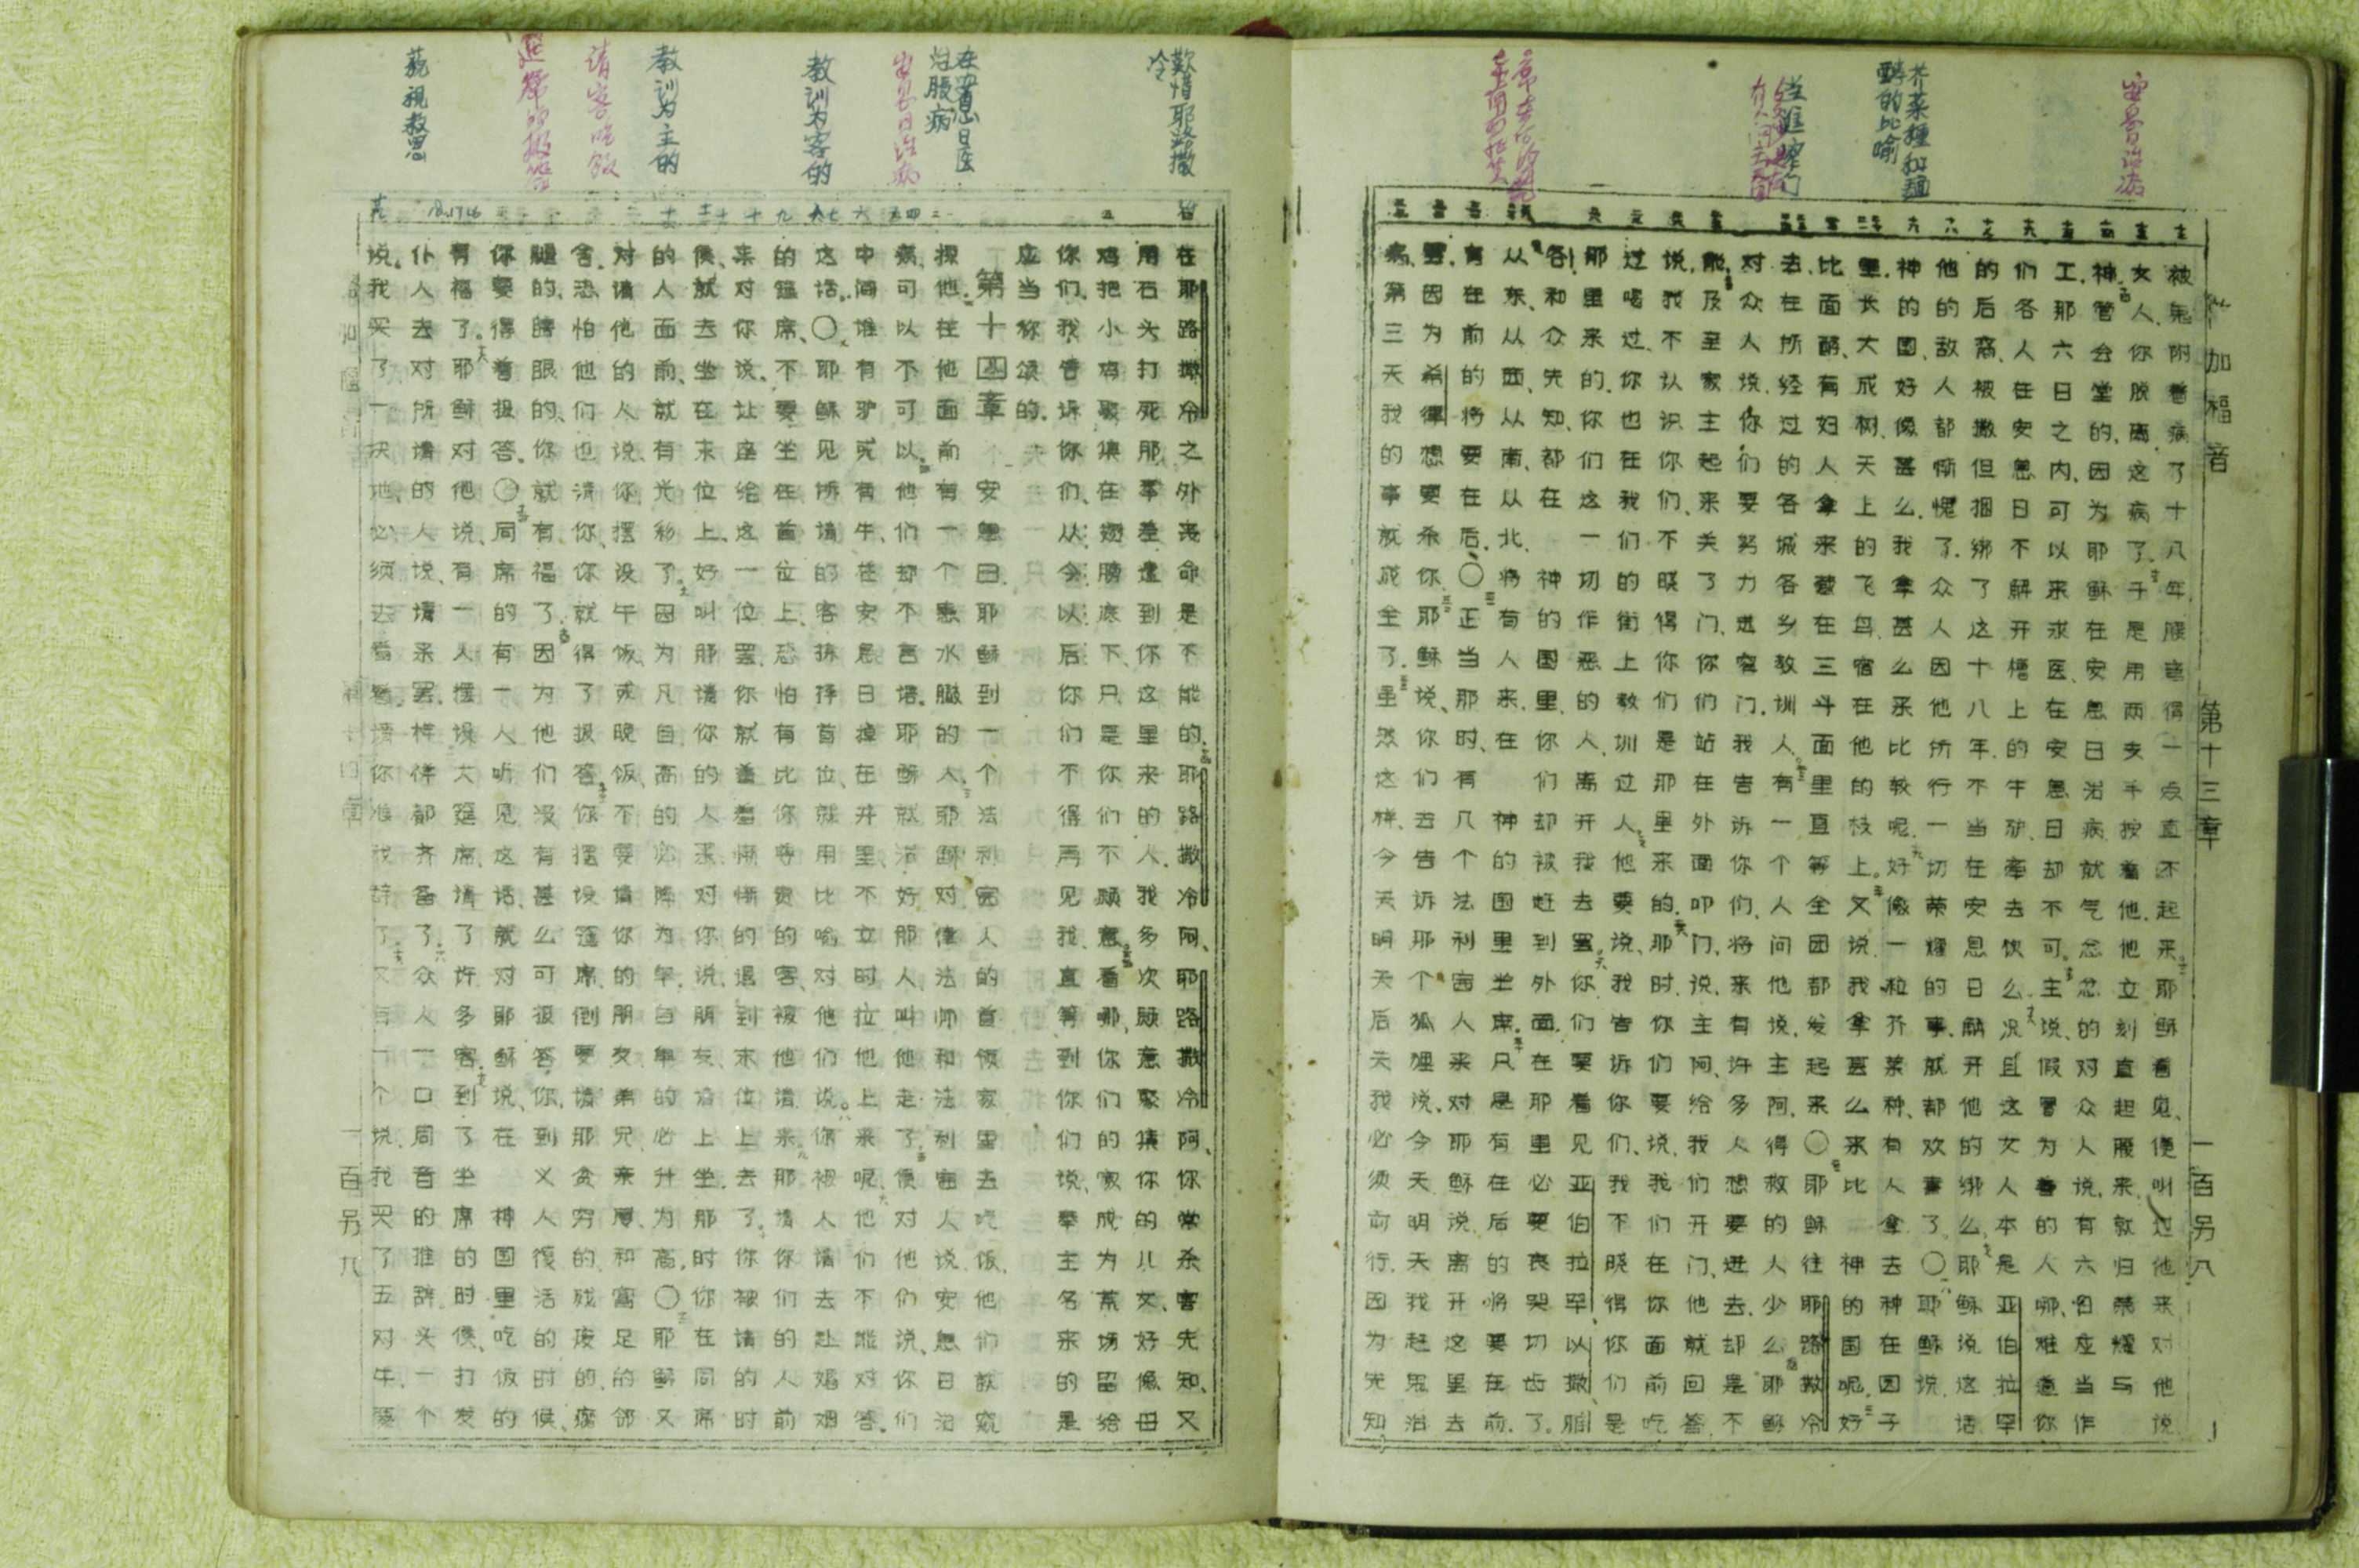 安息日治病
芥菜種和麵
酵的比喻
当進窄门
路加福音
第十三章
一百另八
被鬼附着病了十八年、腰弯得一点直不起来耶稣看见、便叫过他来对他说
女人、你脱离这病了、于是用两支手按着他、他立刻直起腰来、就归荣耀与
神管会堂的、因为耶稣在安息日治病就气忿忿的对众人说、有六日应当作
工、那六日之内可以来求医、在安息日却不可。主说、假冒为善的人哪、难道你
们各人在安息日不解开槽上的牛驴、牵去饮么、况且这女人本是亚伯拉罕
的后裔、被撒但捆绑了这十八年、不当在安息日解开他的绑么、耶稣说这话
他的敌人都惭愧了、众人因他所行一切荣耀的事、就都欢喜了〇耶稣说、
神的国好像甚么、我拿甚么来比较呢、好像一粒芥菜种、有人拿去种在园子
里、长大成树、天上的飞鸟宿在他的枝上。又说我拿甚么来比 神的国呢、好
比面酵、有妇人拿来藏在三斗面里直等全团都发起来〇耶稣往耶路撒冷
去、在所经过的各城各乡教训人有一个人问他说、主阿、得救的人少么耶稣
对众人说、你们要努力进窄门、我告诉你们、将来有许多人想要进去、却是不
能、及至家主起来关了门、你们站在外面叩门、说、主阿、给我们开门、他就回答
说、我不认识你们、不晓得你们是那里来的、那时、你们要说、我们在你面前吃
过喝过、你也在我们的街上教训过人、他要说、我告诉你们、我不晓得你们是
那里来的、你们这一切作恶的人、离开我去罢、你们要看见亚伯拉罕以撒
各、和众先知、都在 神的国里、你们却被赶到外面、在那里必要哀哭切齿了。
从东、从西、从南、从北、将有人来、在 神的国里坐席。只是有在后的将要在前、
有在前的将要在后、〇正当那时、有几个法利害人来对耶稣说离开这里去
罢、因为希律想要杀你耶稣说、你们去告诉那个狐狸说、今天明天我赶鬼治
病、第三天我的事就成全了、虽然这样、今天明天后天我必须前行、因为先知
歎惜耶路撒
冷
在安息日医
治臌病
安息日治病
教训为客的
教训为主的
请客吃飯
筵席的报答
藐视救恩
在耶路撒冷之外丧命是不能的、耶路撒冷阿、耶路撒冷阿、你常杀害先知、又
用石头打死那奉差遣到你这里来的人、我多次愿意聚集你的儿女、好像母
鸡把小鸡聚集在翅膀底下、只是你们不愿意看哪、你们的家成为荒场留给
你们、我告诉你们、从今以后你们不得再见我、直等到你们说、奉主名来的是
应当称颂的.
第十四章 安息日、耶稣到一个法利害人的首领家里去吃饭、他们就窥
探他.在他面前有一个患水臌的人、耶稣对律法师和法利害人说、安息日治
病、可以不可以、他们却不言语、耶稣就治好那人、叫他走了、便对他们说、你们
中间谁有驴或有牛、在安息日掉在井里、不立时拉他上来呢、他们不能对答.
这话。〇耶稣见所请的客拣择首位、就用比喻对他们说。你被人请去赴婚姻
的筵席、不要坐在首位上、恐怕有比你尊贵的客、被他请来、那请你们的人前
来对你说、让座给这一位罢、你就羞惭惭的退到末位上去了。你被请的时
候、就去坐在末位上、好叫那请你的人来对你说、朋友、请上坐、那时你在同席
的人面前、就有光彩了、因为凡自高的必降为卑、自卑的必升为高、〇耶稣又
对请他的人说、你摆设午饭或晚饭不要请你的朋友弟兄亲属、和富足的邻
舍、恐怕他们也请你、你就得了报答、你摆设筵席、倒要请那贫穷的、残疾的、瘸
腿的、瞎眼的、你就有福了、因为他们没有甚么可报答你、到义人复活的时候、
你要得着报答。〇同席的有一人听见这话、就对耶稣说、在 神国里吃饭的
有福了。耶稣对他说、有一人摆设大筵席、请了许多客、到了坐席的时候、打发
仆人去对所请的人说、请来罢、样样都齐备了、众人一口同音的推辞、头一个
说。我买了一块地、必须去看看、请你准我辞了、又有一个说、我买了五对牛、要
路加福音
第十四章
一百另九